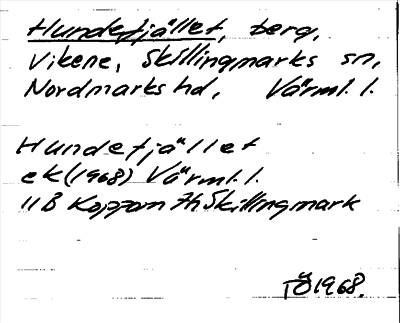 Hundefjället, berg,
Vikene, Skillingmarks sn,
Nordmarks hd, Värml. l.
Hundefjället
ek (1968) Värml. l.
11 B Koppom 7h Skillingmark
TÖ 1968.